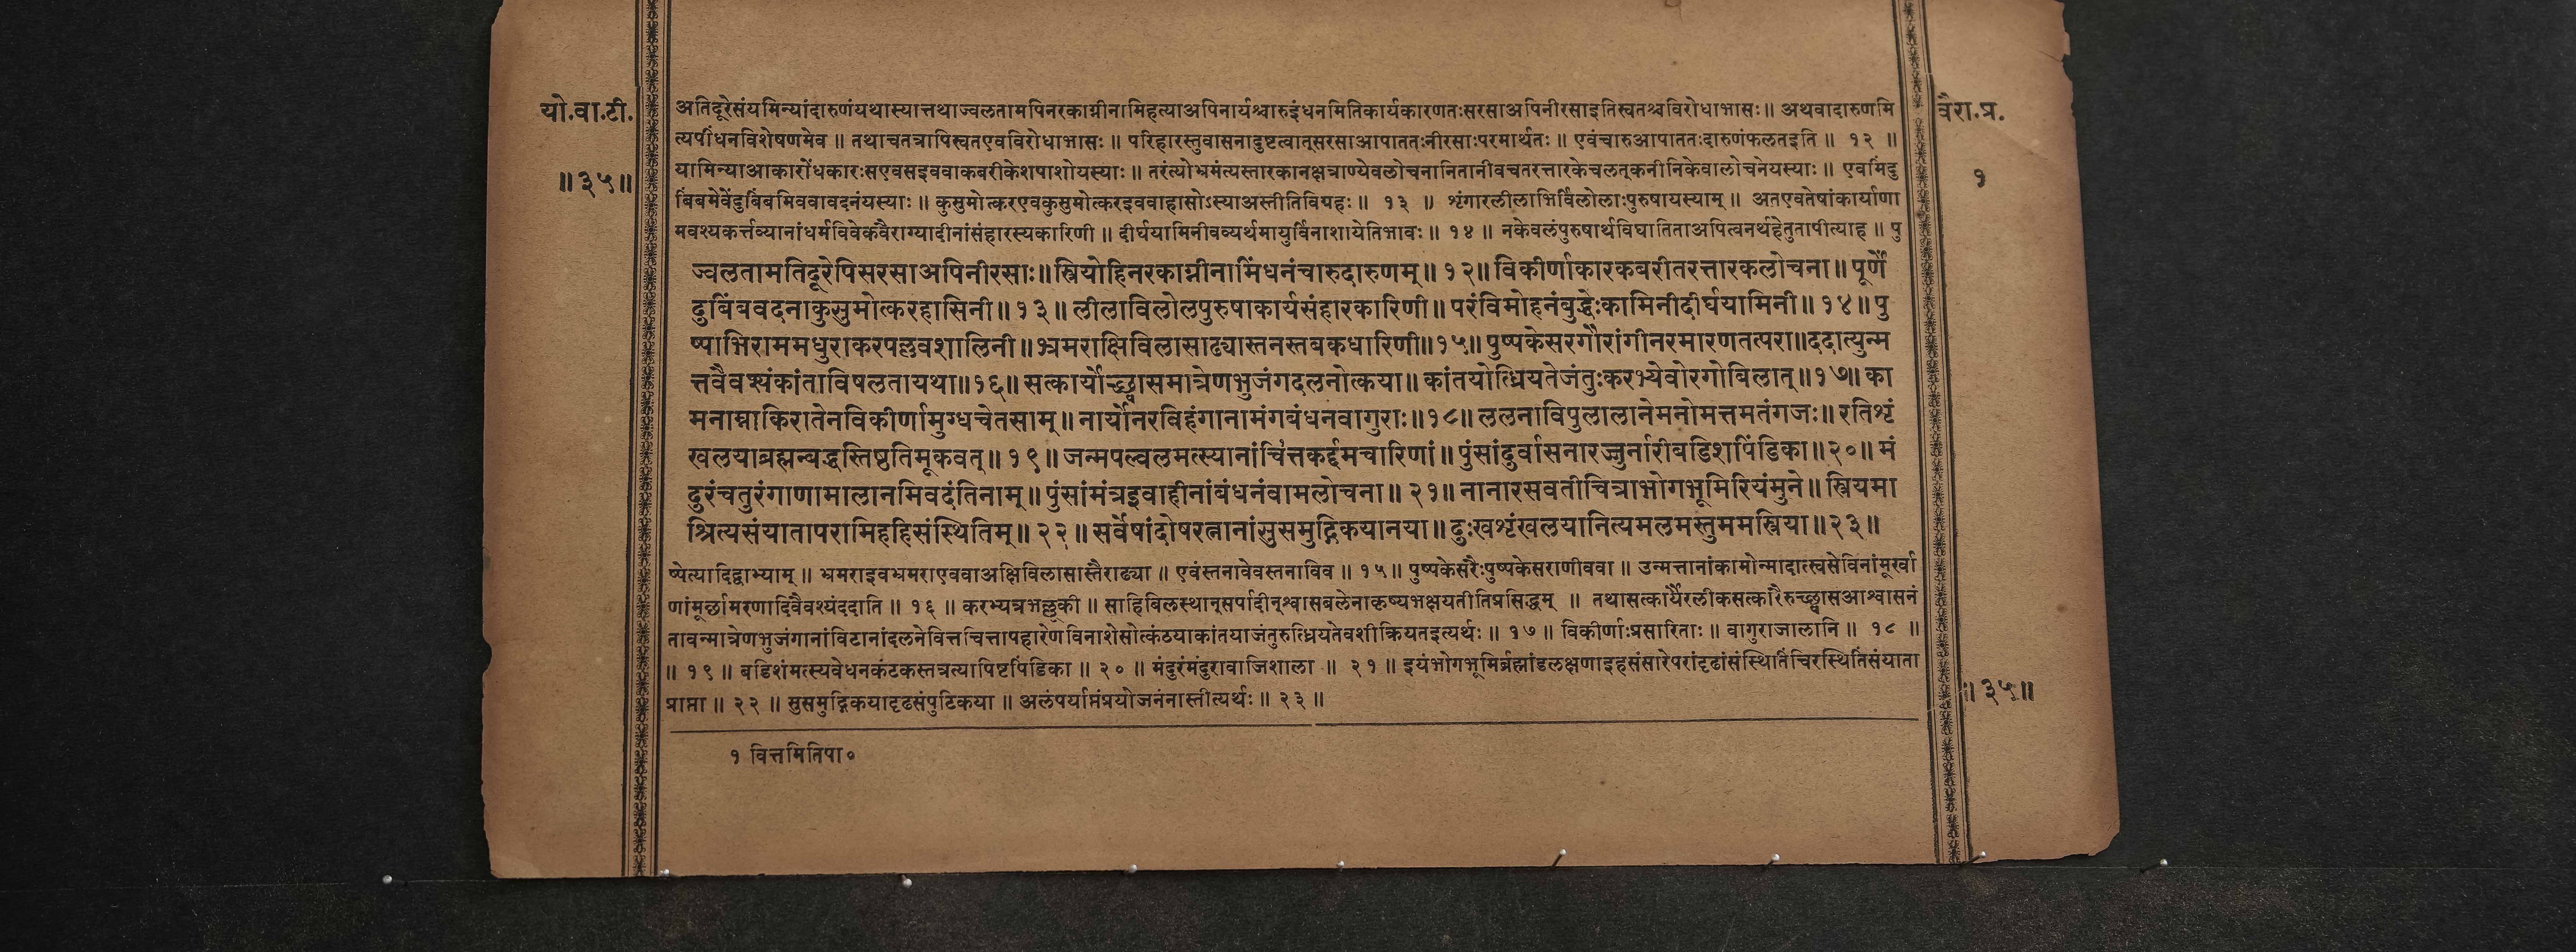 यो.वा.टी.
॥३५॥
वैरा.प्र.
१
अतिदूरेसंयमिन्यांदारुणंयथास्यात्तथाज्वलतामपिनरकाग्नीनामिहत्याअपिनार्यश्चारुइंधनमितिकार्यकारणतःसरसाअपिनीरसाइतिस्वतश्चविरोधाभासः॥ अथवादारुणमि
त्यपींधनविशेषणमेव॥ तथाचतत्रापिस्वतएवविरोधाभासः॥ परिहारस्तुवासनादुष्टत्वात्सरसाआपाततःनीरसाःपरमार्थतः॥ एवंचारुआपाततःदारुणंफलतइति॥ १२ ॥
यामिन्याआकारोंधकारःसएवसइववाकबरीकेशपाशोयस्याः॥ तरंत्योभ्रमंत्यस्तारकानक्षत्राण्येवलोचनानितानीवचतरत्तारकेचलत्कनीनिकेवालोचनेयस्याः॥ एवमिंदु
बिंबमेवेंदुबिंबमिववावदनंयस्याः॥ कुसुमोत्करएवकुसुमोत्करइववाहासोऽस्याअस्तीतिविग्रहः॥ १३ ॥ शृंगारलीलाभिर्विलोलाःपुरुषायस्याम्॥ अतएवतेषांकार्याणा
मवश्यकर्त्तव्यानांधर्मविवेकवैराग्यादीनांसंहारस्यकारिणी॥ दीर्घयामिनीवव्यर्थमायुर्विनाशायेतिभावः॥ १४ ॥ नकेवलंपुरुषार्थविघातिताअपित्वनर्थहेतुतापीत्याह॥ पु
ज्वलतामतिदूरेपिसरसाअपिनीरसाः॥ स्त्रियोहिनरकाग्नीनामिंधनंचारुदारुणम्॥ १२॥ विकीर्णाकारकबरीतरत्तारकलोचना॥ पूर्णें
दुबिंबवदनाकुसुमोत्करहासिनी॥ १३॥ लीलाविलोलपुरुषाकार्यसंहारकारिणी॥ परंविमोहनंबुद्धेःकामिनीदीर्घयामिनी॥ १४॥ पु
ष्पाभिराममधुराकरपल्लवशालिनी॥ भ्रमराक्षिविलासाढ्यास्तनस्तबकधारिणी॥१५॥ पुष्पकेसरगौरांगीनरमारणतत्परा॥ददात्युन्म
त्तवैवश्यंकांताविषलतायथा॥१६॥ सत्कार्योच्छ्वासमात्रेणभुजंगदलनोत्कया॥ कांतयोत्ध्रियतेजंतुःकरभ्येवोरगोबिलात्॥१७॥ का
मनाम्नाकिरातेनविकीर्णामुग्धचेतसाम्॥ नार्योनरविहंगानामंगबंधनवागुराः॥१८॥ ललनाविपुलालानेमनोमत्तमतंगजः॥ रतिशृं
खलयाब्रह्मन्बद्धस्तिष्ठतिमूकवत्॥ १९॥ जन्मपल्वलमत्स्यानांचित्तकर्द्दमचारिणां॥ पुंसांदुर्वासनारज्जुर्नारीबडिशपिंडिका॥२०॥ मं
दुरंचतुरंगाणामालानमिवदंतिनाम्॥ पुंसांमंत्रइवाहीनांबंधनंवामलोचना॥ २१॥ नानारसवतीचित्राभोगभूमिरियंमुने॥ स्त्रियमा
श्रित्यसंयातापरामिहहिसंस्थितिम्॥ २२॥ सर्वेषांदोषरत्नानांसुसमुद्गिकयानया॥ दुःखशृंखलयानित्यमलमस्तुममस्त्रिया॥२३॥
ष्पेत्यादिद्वाभ्याम्॥ भ्रमराइवभ्रमराएववाअक्षिविलासास्तैराढ्या॥ एवंस्तनावेवस्तनाविव॥ १५॥ पुष्पकेसरैःपुष्पकेसराणीववा॥ उन्मत्तानांकामोन्मादात्स्वसेविनांमूर्खा
णांमूर्छामरणादिवैवश्यंददाति॥ १६ ॥ करभ्यत्रभल्लूकी॥ साहिबिलस्थान्सर्पादीन्श्वासबलेनाकृष्यभक्षयतीतिप्रसिद्धम् ॥ तथासत्कार्यैरलीकसत्कारैरुच्छ्वासआश्वासनं
तावन्मात्रेणभुजंगानांविटानांदलनेवित्तचित्तापहारेणविनाशेसोत्कंठयाकांतयाजंतुरुत्ध्रियतेवशीक्रियतइत्यर्थः॥ १७ ॥ विकीर्णाःप्रसारिताः॥ वागुराजालानि॥ १८ ॥
॥ १९ ॥ बडिशंमत्स्यवेधनकंटकस्तत्रत्यापिष्टपिंडिका॥ २० ॥ मंदुरंमंदुरावाजिशाला॥ २१ ॥ इयंभोगभूमिर्ब्रह्मांडलक्षणाइहसंसारेपरांदृढांसंस्थितिंचिरस्थितिंसंयाता
प्राप्ता॥ २२ ॥ सुसमुद्गिकयादृढसंपुटिकया॥ अलंपर्याप्तंप्रयोजनंनास्तीत्यर्थः॥ २३ ॥
॥३५॥
१ वित्तमितिपा०